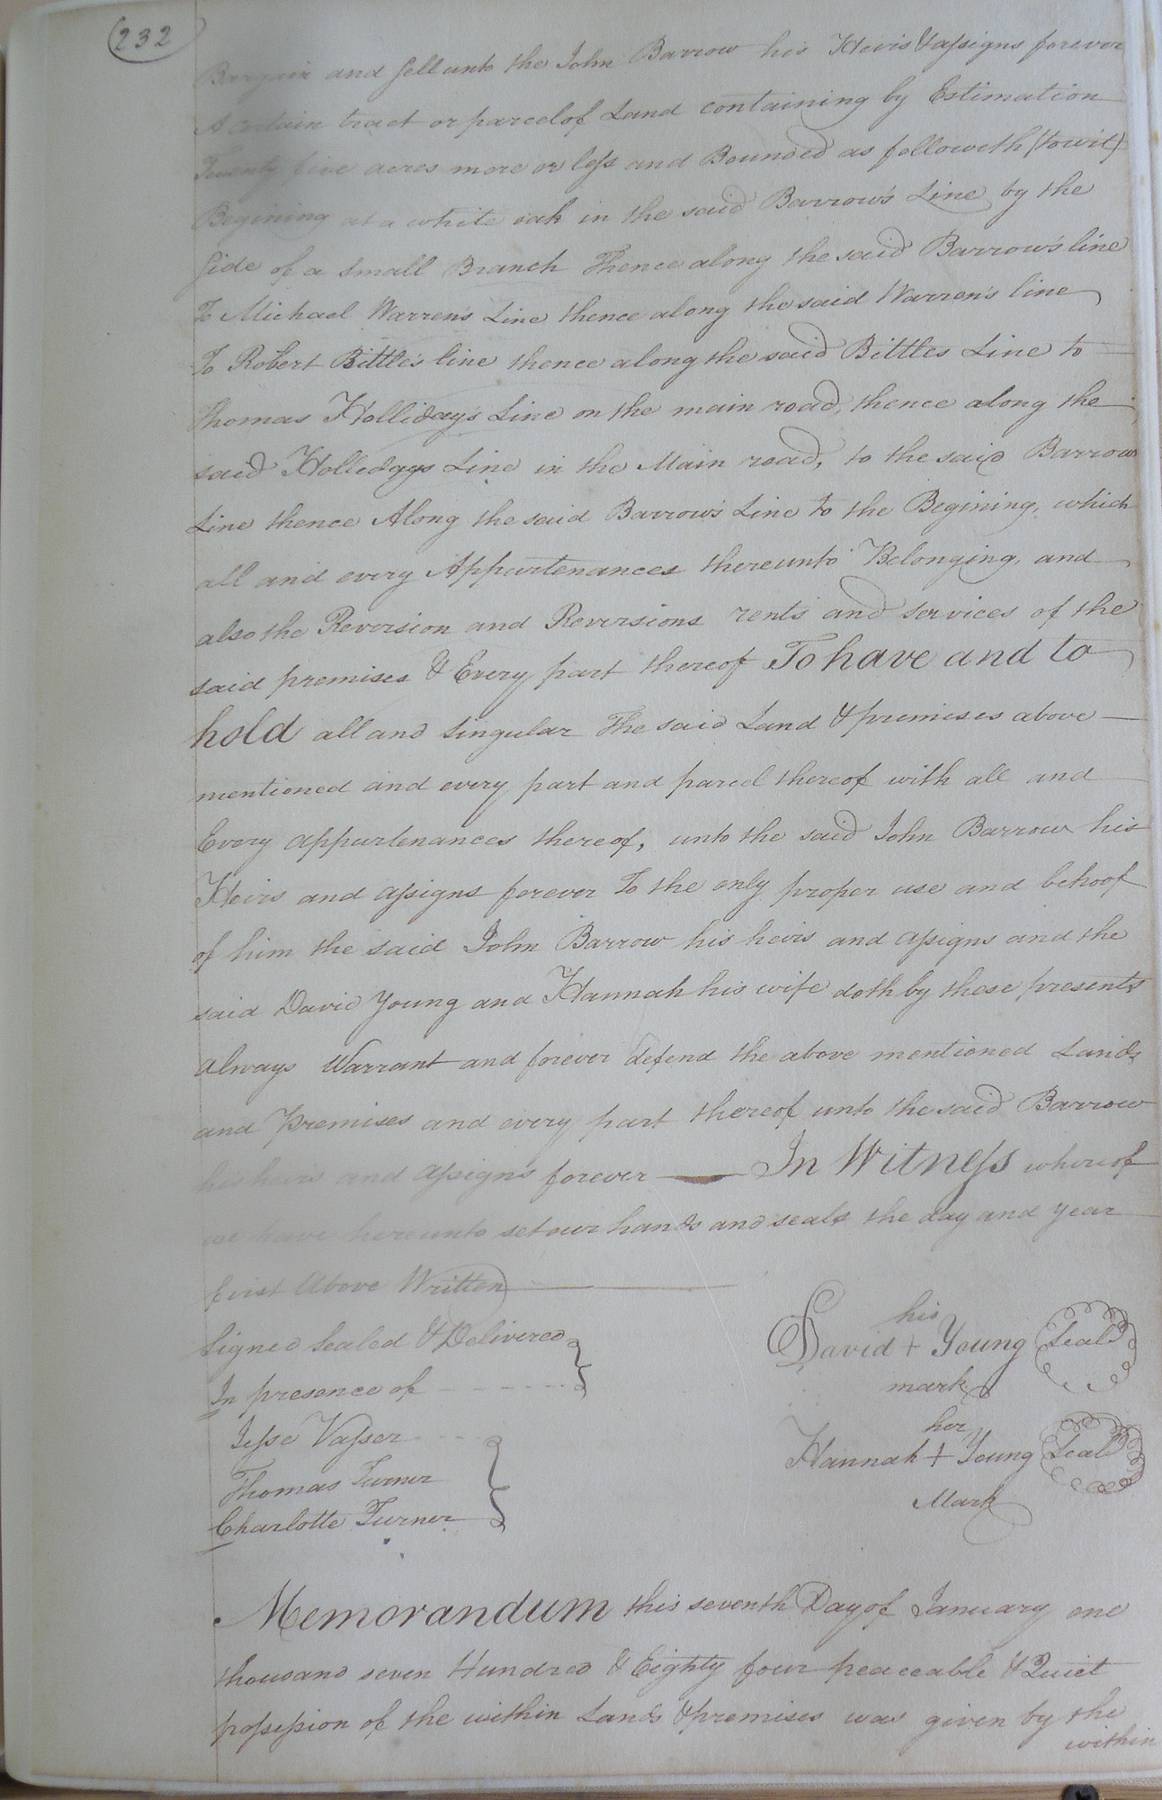 232
Bargain and sell unto the John Barrow his Heirs & assigns forever
A certain tract or parcel of Land containing by Estimation
Twenty five acres more or less and Bounded as followeth (towit)
Begining at a white oak in the said Barrow's Line by the
side of a small Branch Thence along the said Barrow's line
To Michael Warren's Line thence along the said Warren's line
To Robert Bittle's line thence along the said Bittles Line to
Thomas Holliday's Line on the main road, thence along the
said Holledays Line in the Main road, to the said Barrow
Line thence Along the said Barrow's Line to the Begining, which
all and every Appurtenances thereunto Belonging, and
also the Reversion and Reversions rents and services of the
said premises & Every part thereof To have and to
hold all and singular The said Land & premises above
mentioned and every part and parcel thereof with all and
Every appurtenances thereof, unto the said John Barrow his
Heirs and assigns forever To the only proper use and behoof
of him the said John Barrow his heirs and assigns and the
said David Young and Hannah his wife doth by these presents
always Warrant and forever defend the above mentioned Lands
and Premises and every part thereof unto the said Barrow
his heirs and assigns forever — In Witness whereof
we have hereunto set our hands and seals the day and year
first Above Written
Signed Sealed & Delivered
In presence of
Jesse Vasser
Thomas Turner
Charlotte Turner
his
David + Young Seal
mark
her
Hannah + Young Seal
Mark
Memorandum this seventh Day of January one
thousand seven Hundred & Eighty four peaceable & Quiet
possession of the within Lands & premises was given by the
within